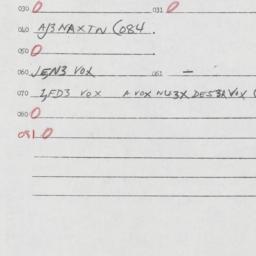 030 0 031 0
040 A/3 NAXTN C084.
050 0
060 JEN3 VOX 061 -
070 IFD3 VOX A VOX NU3X DES3A VOX (
080 0
081 0